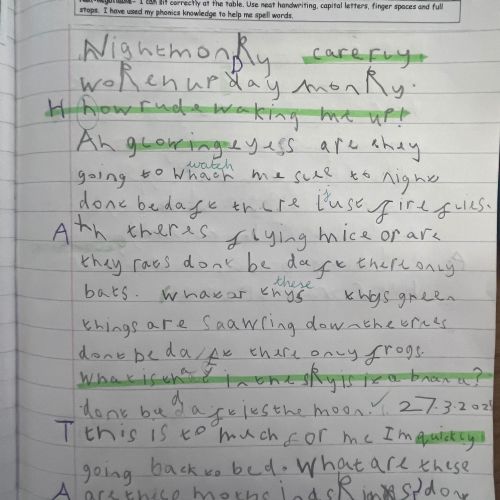 I can sit correctly at the table. Use neat handwriting, capital letters, finger spaces and full
stops. I have used my phonics knowledge to help me spell words.
Nightmonky carefuy
woken up Day monky.
H how rude waking me up!
Ah glowing eyess are they
watch
going to whach me slee to night
dont be daft there just fire flies.
A Ah theres flying mice or are
they rats dont be daft there only
these
bats. whatar thys thys green
things are saawring down the trees
dont be daft there only frogs.
what is that in the sky is it a brana?
dont be daft its the moon. 27.3.202
T this is to much for me Im quickly
going back to bed. What are these
A are thice moths in skinys? dont